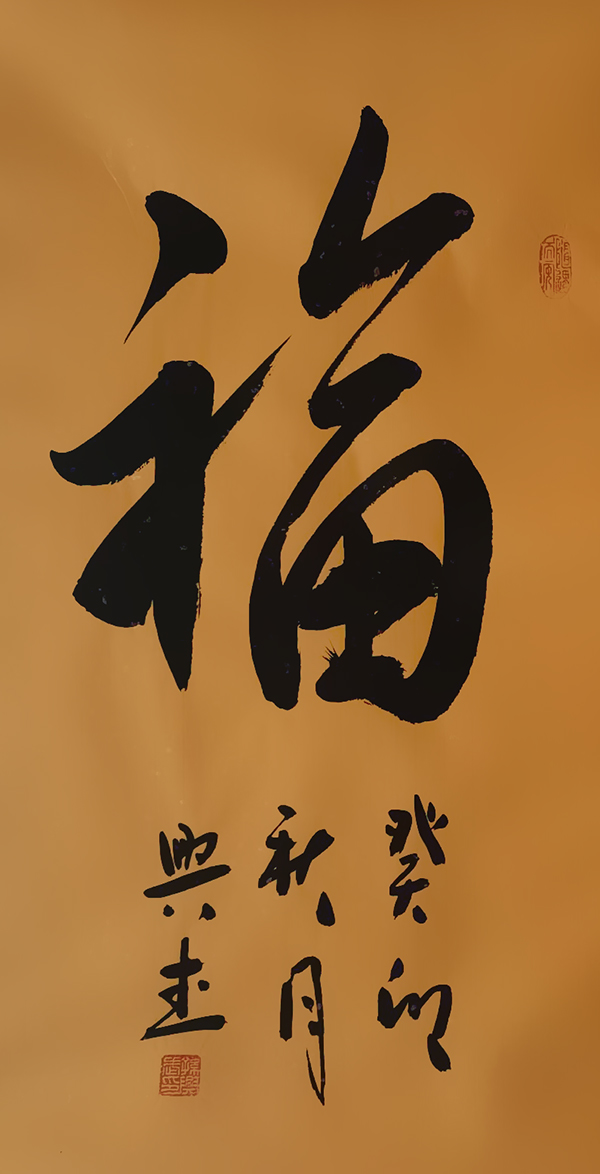 福
癸卯
秋月
興志